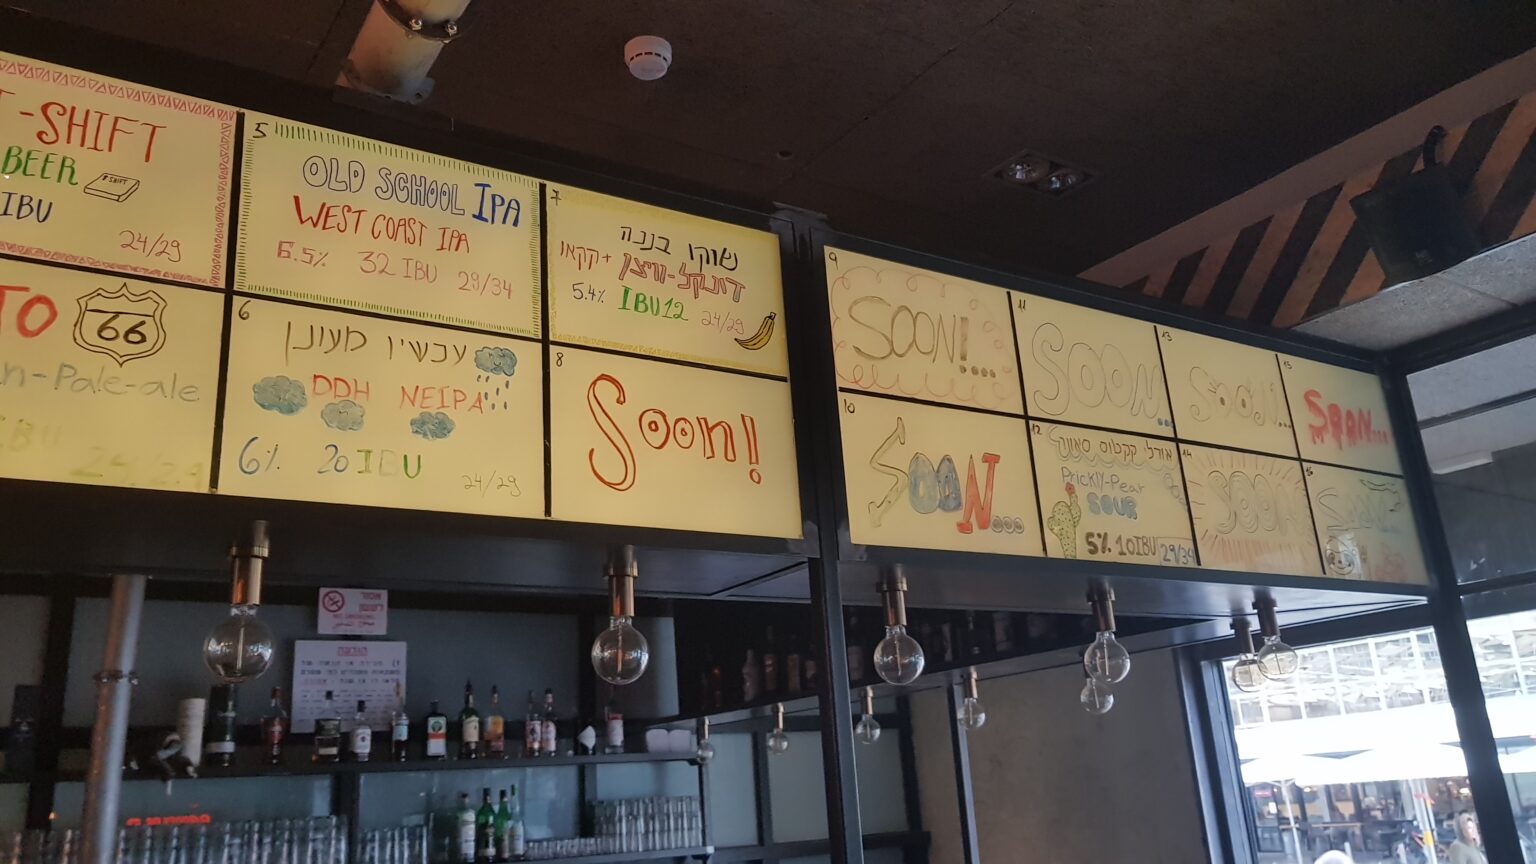 -SHIFT
BEER
SHIFT
IBU
24/29
TO
66
n-Pale-ale
24/29
5
OLD SCHOOL IPA
WEST COAST IPA
6.5% 32 IBU 29/34
6
עכשיו מעונן
DDH NEIPA
6% 20 IBU
24/29
7
שוקו בננה
דונקל-וויצן + קקאו
5.4% IBU 12 24/29
8
Soon!
9
SOON!...
10
SOON...
11
SOON...
12
אורלי קקטוס סאוור
Prickly-Pear
SOUR
5% 10IBU 29/34
13
SOON...
14
SOON
15
SOON...
16
SOON